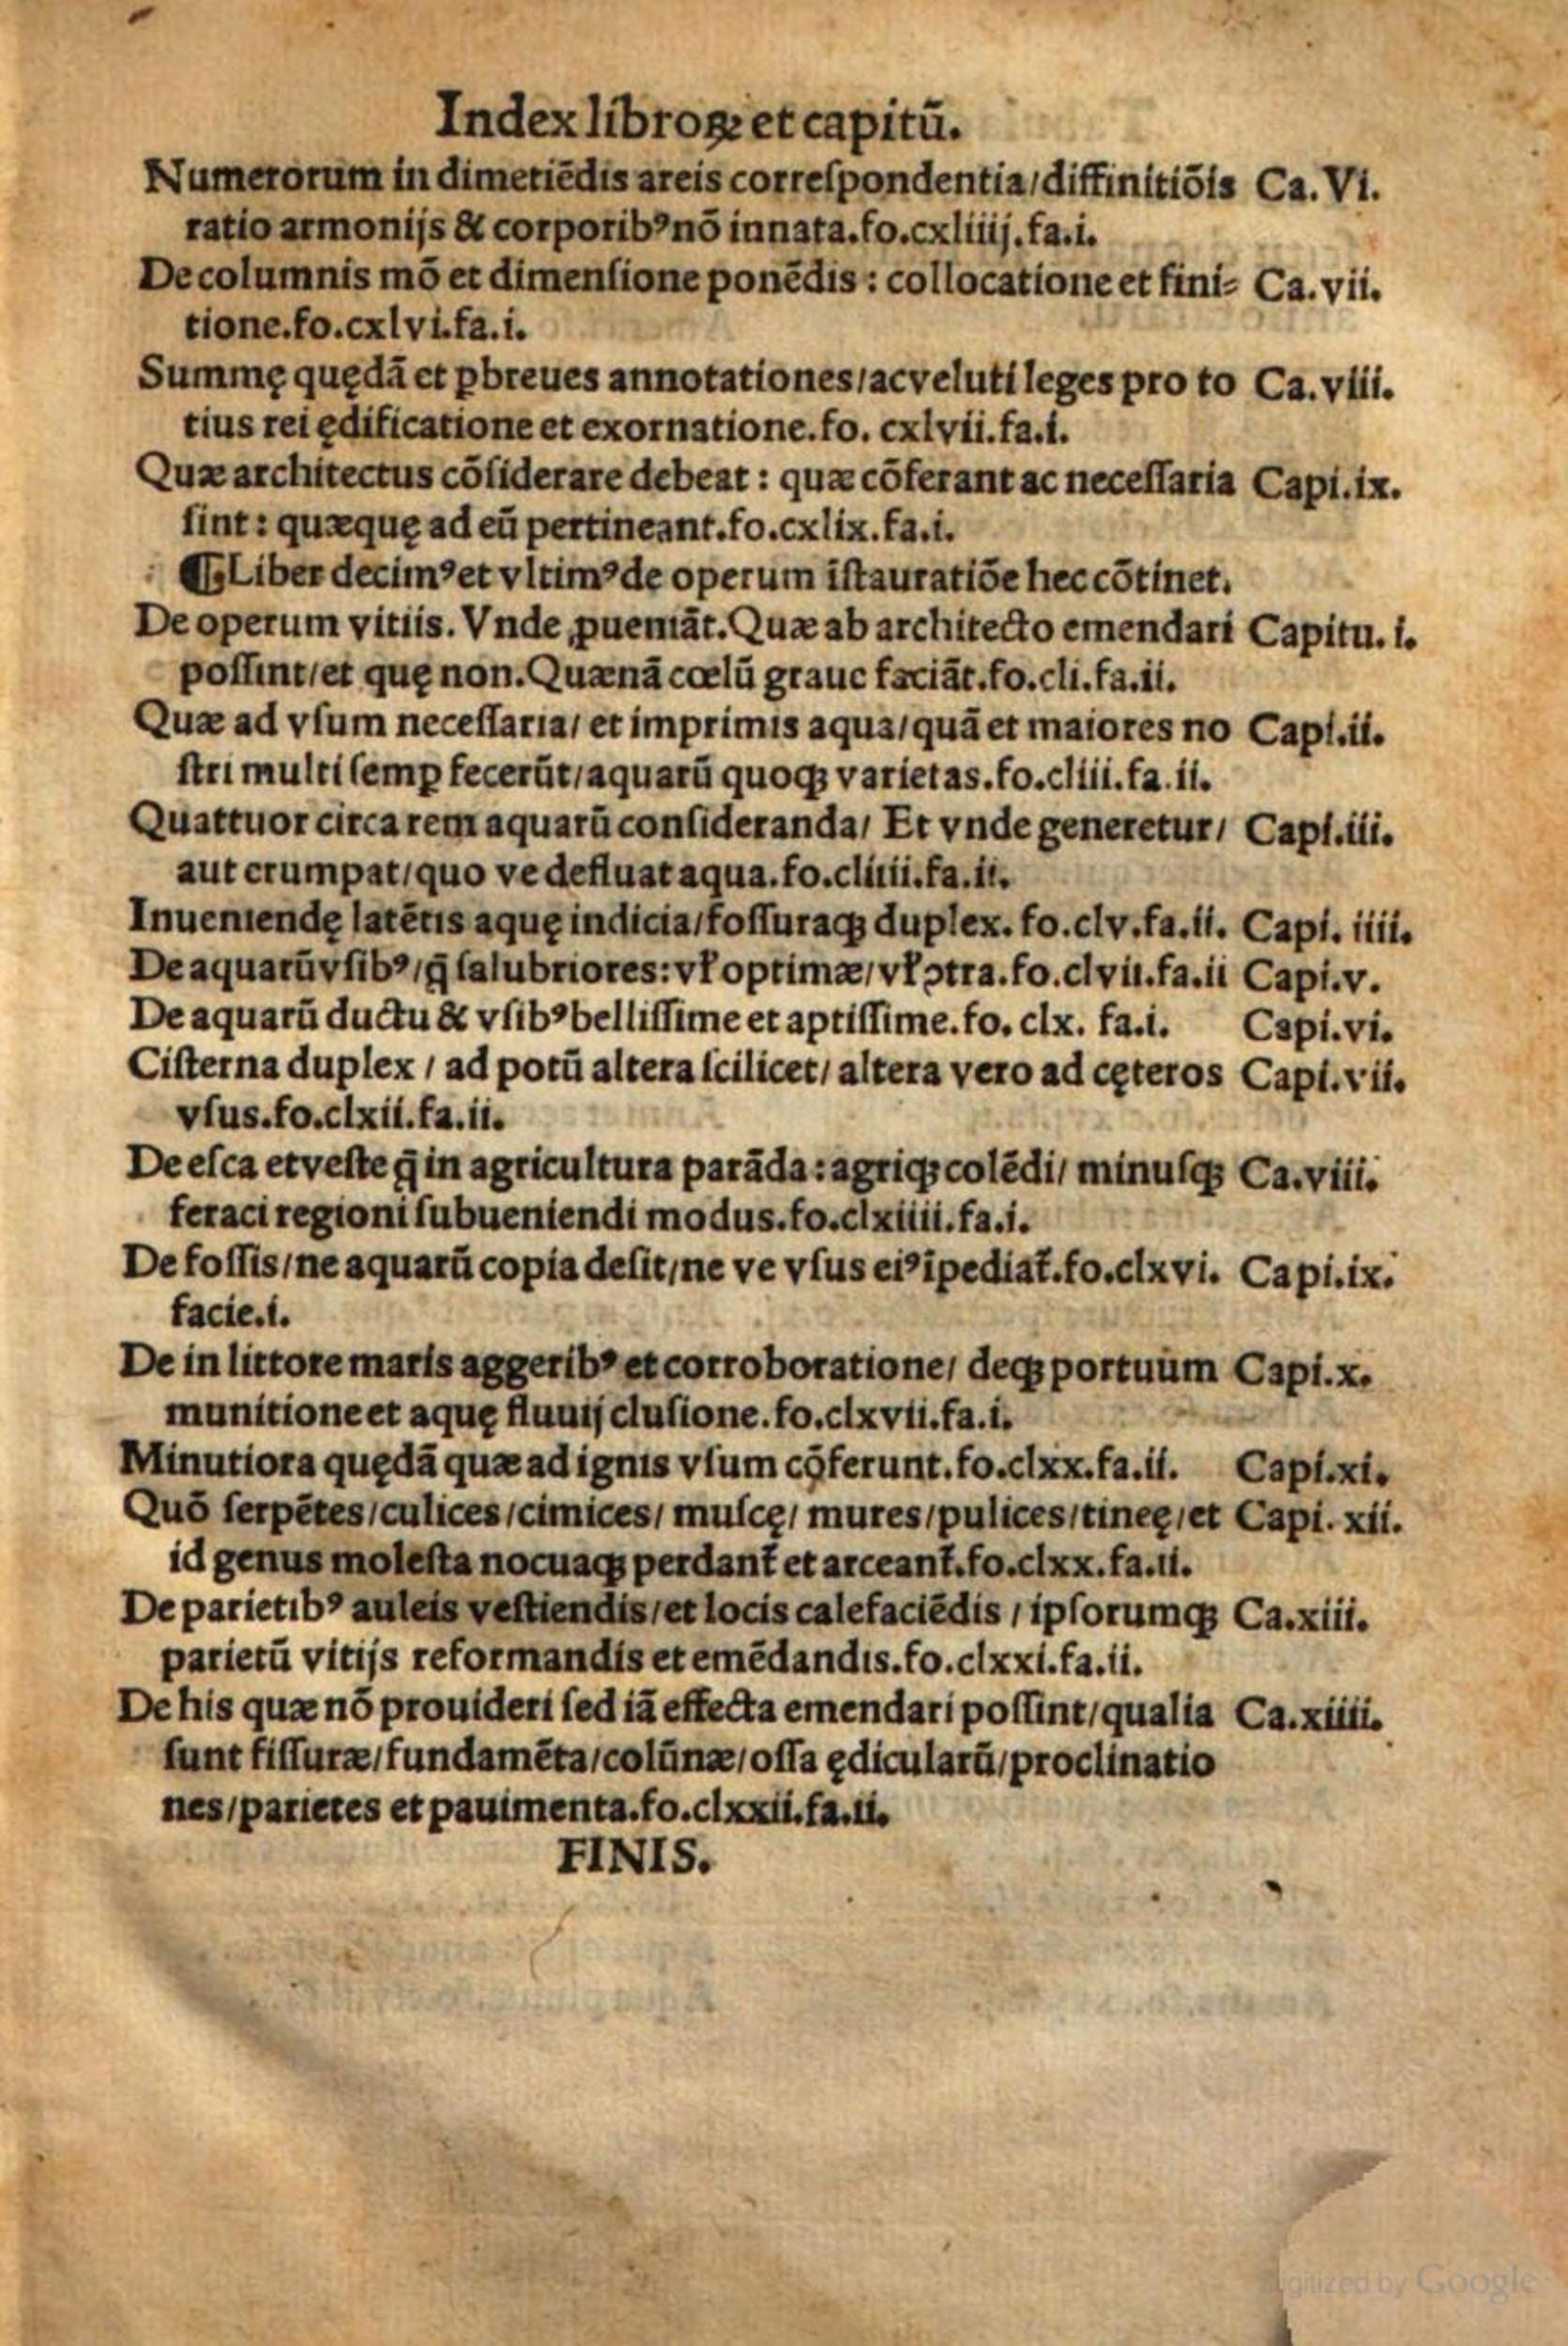 Index libroꝝ et capitū.
Numerorum in dimetiēdis areis correſpondentia/diffinitiōis Ca. Vi.
ratio armonijs & corporibꝰ nō innata.fo.cxliiij.fa.i.
De columnis mō et dimenſione ponēdis : collocatione et fini⸗ Ca. vii.
tione.fo.cxlvi.fa.i.
Summę quędā et ꝑbreues annotationes/ac veluti leges pro to Ca. viii.
tius rei ędificatione et exornatione.fo. cxlvii.fa.i.
Quæ architectus cōſiderare debeat : quæ cōferant ac neceſſaria Capi.ix.
ſint : quæquę ad eū pertineant.fo.cxlix.fa.i.
¶Liber decimꝰ et vltimꝰ de operum īſtauratiōe hec cōtinet.
De operum vitiis. Vnde ꝓueniāt.Quæ ab architecto emendari Capitu. i.
poſſint/et quę non.Quænā cœlū graue faciāt.fo.cli.fa.ii.
Quæ ad vſum neceſſaria/ et imprimis aqua/quā et maiores no Capi.ii.
ſtri multi ſemꝑ fecerūt/aquarū quoqꝫ varietas.fo.cliii.fa.ii.
Quattuor circa rem aquarū conſideranda/ Et vnde generetur/ Capi.iii.
aut erumpat/quo ve defluat aqua.fo.cliiii.fa.ii.
Inueniendę latētis aquę indicia/foſſuraqꝫ duplex. fo.clv.fa.ii. Capi. iiii.
De aquarū vſibꝰ/q̄ ſalubriores:vł optimæ/vł ↄtra.fo.clvii.fa.ii Capi.v.
De aquarū ductu & vſibꝰ belliſſime et aptiſſime.fo. clx. fa.i. Capi.vi.
Ciſterna duplex / ad potū altera ſcilicet/ altera vero ad cęteros Capi.vii.
vſus.fo.clxii.fa.ii.
De eſca et veſte q̄ in agricultura parāda : agriqꝫ colēdi/ minuſqꝫ Ca.viii.
feraci regioni ſubueniendi modus.fo.clxiiii.fa.i.
De foſſis/ne aquarū copia deſit/ne ve vſus eiꝰ īpediat᷑.fo.clxvi. Capi.ix.
facie.i.
De in littore maris aggeribꝰ et corroboratione/ deqꝫ portuum Capi.x.
munitione et aquę fluuij cluſione.fo.clxvii.fa.i.
Minutiora quędā quæ ad ignis vſum cōferunt.fo.clxx.fa.ii. Capi.xi.
Quō ſerpētes/culices/cimices/ muſcę/ mures/pulices/tineę/et Capi. xii.
id genus moleſta nocuaqꝫ perdant᷑ et arceant᷑.fo.clxx.fa.ii.
De parietibꝰ auleis veſtiendis/et locis calefaciēdis / ipſorumqꝫ Ca.xiii.
parietū vitijs reformandis et emēdandis.fo.clxxi.fa.ii.
De his quæ nō prouideri ſed iā effecta emendari poſſint/qualia Ca.xiiii.
ſunt fiſſuræ/fundamēta/colūnæ/oſſa ędicularū/proclinatio
nes/parietes et pauimenta.fo.clxxii.fa.ii.
FINIS.
Digitized by Google